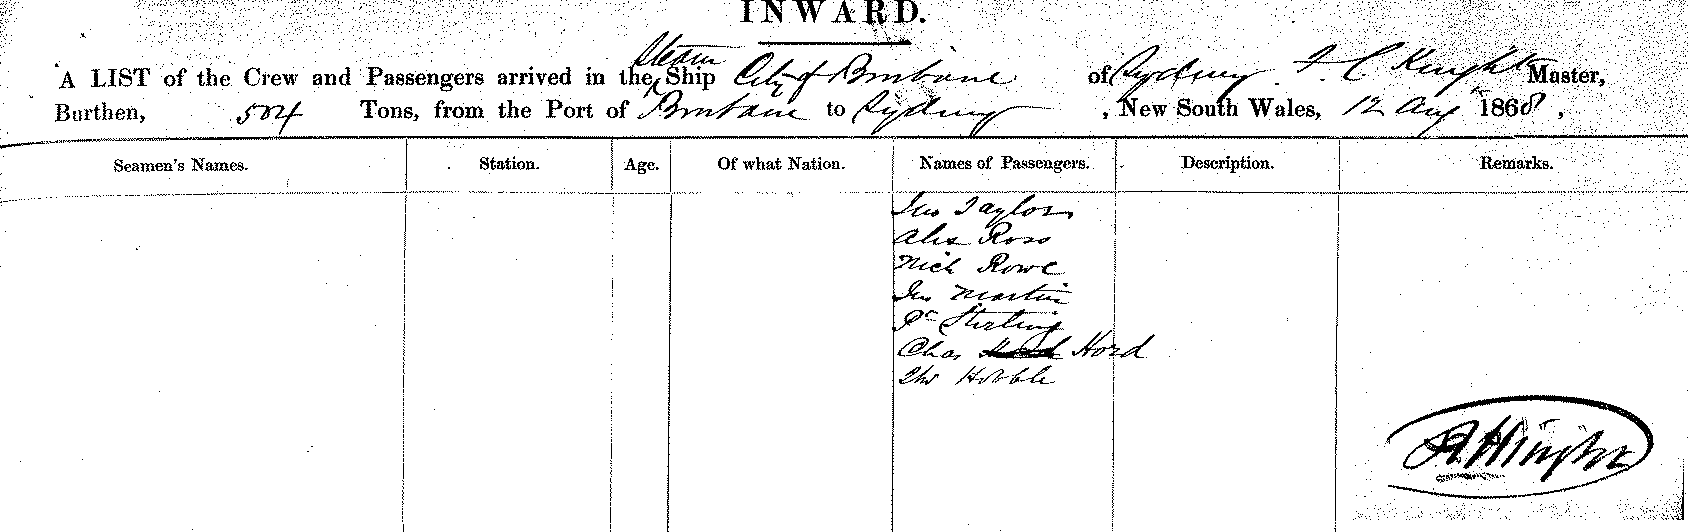 INWARD.
A LIST of the Crew and Passengers arrived in the Steam Ship City of Brisbane of Sydney F. C. Knight Master,
Burthen, 504 Tons, from the Port of Brisbane to Sydney , New South Wales, 12 Aug 1868 ,
Seamen's Names. Station. Age. Of what Nation. Names of Passengers. Description. Remarks.
Jno Taylor
Alex Ross
Nich Rowe
Jno Martin
Pr Sterling
Chas Hord
Thos Hobble